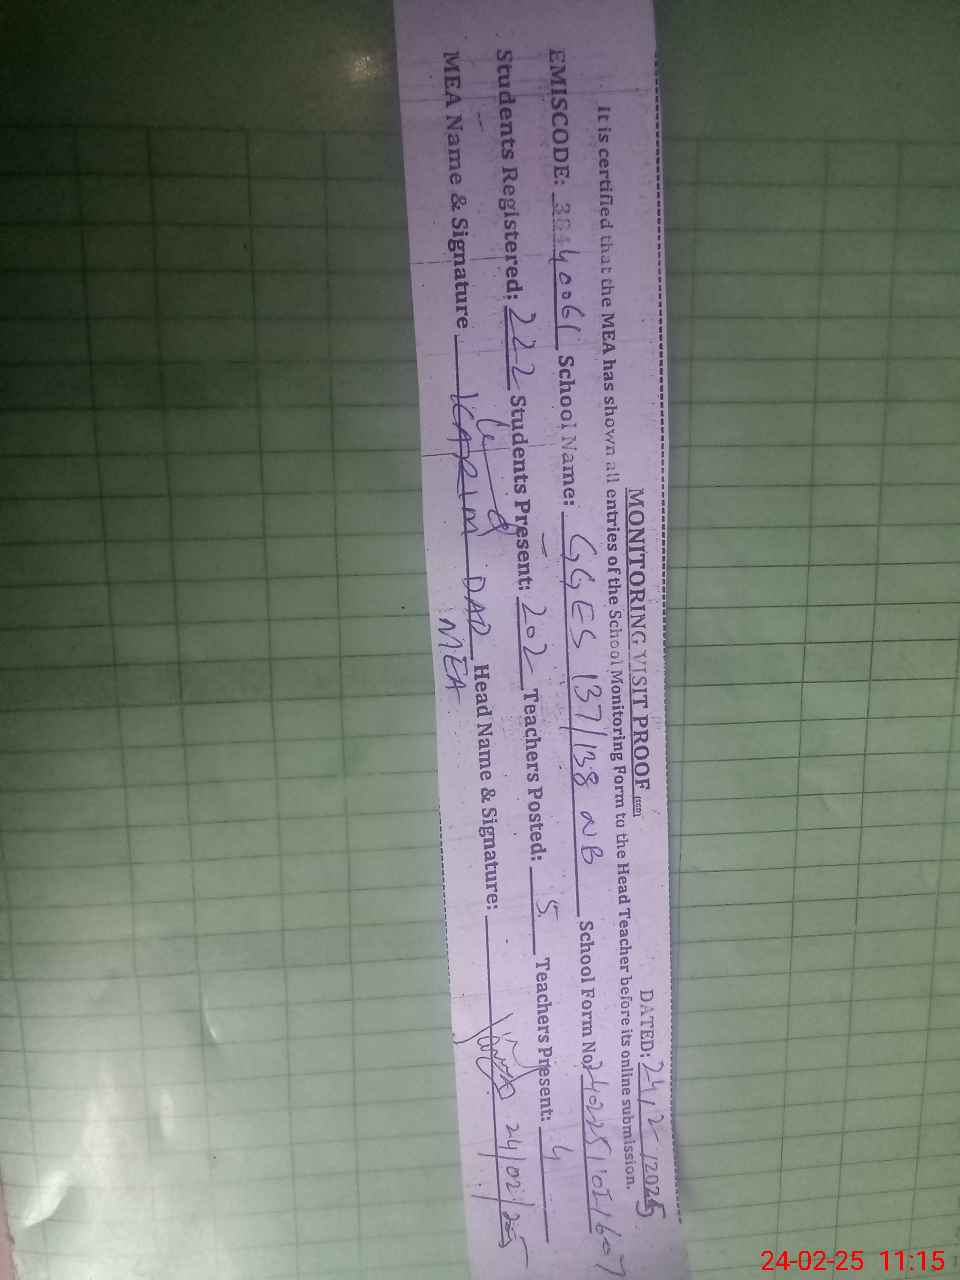 MONITORING VISIT PROOF
DATED: 24/2/2025
It is certified that the MEA has shown all entries of the School Monitoring Form to the Head Teacher before its online submission.
EMISCODE: School Name: GGES 137/138 NB School Form No.
Students Registered: 222 Students Present: 202 Teachers Posted: 5 Teachers Present: 4
MEA Name & Signature KARIM DAD Head Name & Signature: 24/02/2025
MEA
24-02-25 11:15